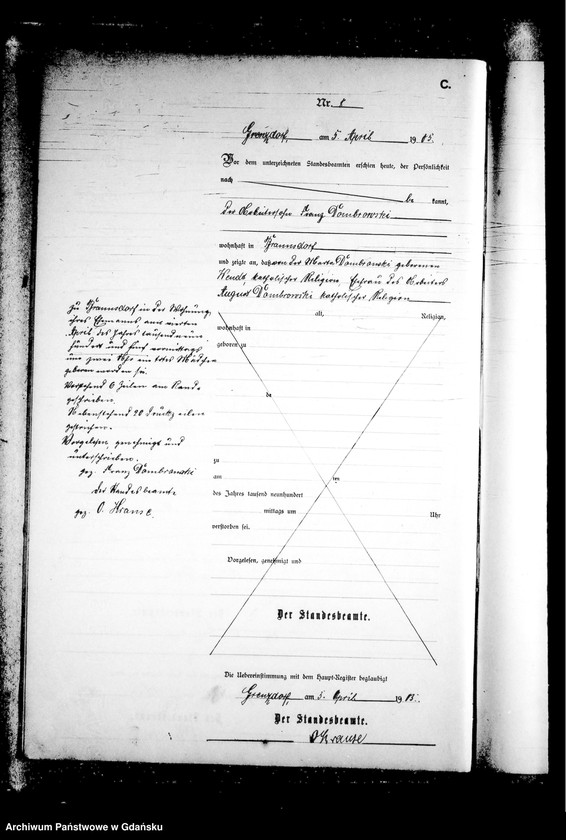 C.
Nr. 8
Grenzdorf, am 5. April 1905.
Vor dem unterzeichneten Standesbeamten erschien heute, der Persönlichkeit
nach be kannt,
der Franz Dombrowski
wohnhaft in Braunsdorf
und zeigte an, daß von der Martha Dombrowski geborenen
Wendt, katholischer Religion, Ehefrau des Arbeiters
August Dombrowski katholischer Religion
alt, Religion,
wohnhaft in
geboren zu
zu Braunsdorf in der Wohnung
ihres Ehemanns, am vierten
April des Jahres tausend neun
hundert und fünf vormittags
um zwei Uhr ein totes Mädchen
geboren worden sei.
Vorstehend 6 Zeilen am Rande
geschrieben.
Nebenstehend 20 Druckzeilen
gestrichen.
Vorgelesen, genehmigt und
unterschrieben.
gez. Franz Dombrowski
Der Standesbeamte
gez. O. Krause.
da
zu
am ten
des Jahres tausend neunhundert
mittags um Uhr
verstorben sei.
Vorgelesen, genehmigt und
Der Standesbeamte.
Die Uebereinstimmung mit dem Haupt-Register beglaubigt
Grenzdorf, am 5. April 1905.
Der Standesbeamte.
O Krause
Archiwum Państwowe w Gdańsku